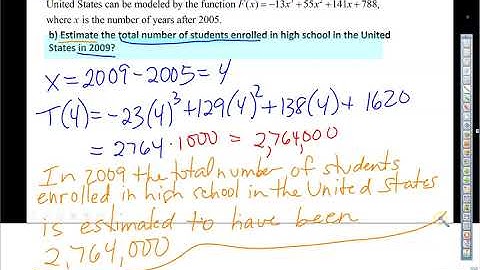 United States can be modeled by the function F(x) = −13x³ + 55x² + 141x + 788,
where x is the number of years after 2005.
b) Estimate the total number of students enrolled in high school in the United
States in 2009?
x = 2009 - 2005 = 4
T(4) = -23(4)³ + 129(4)² + 138(4) + 1620
= 2764 · 1000 = 2,764,000
In 2009 the total number of students
enrolled in high school in the United States
is estimated to have been
2,764,000